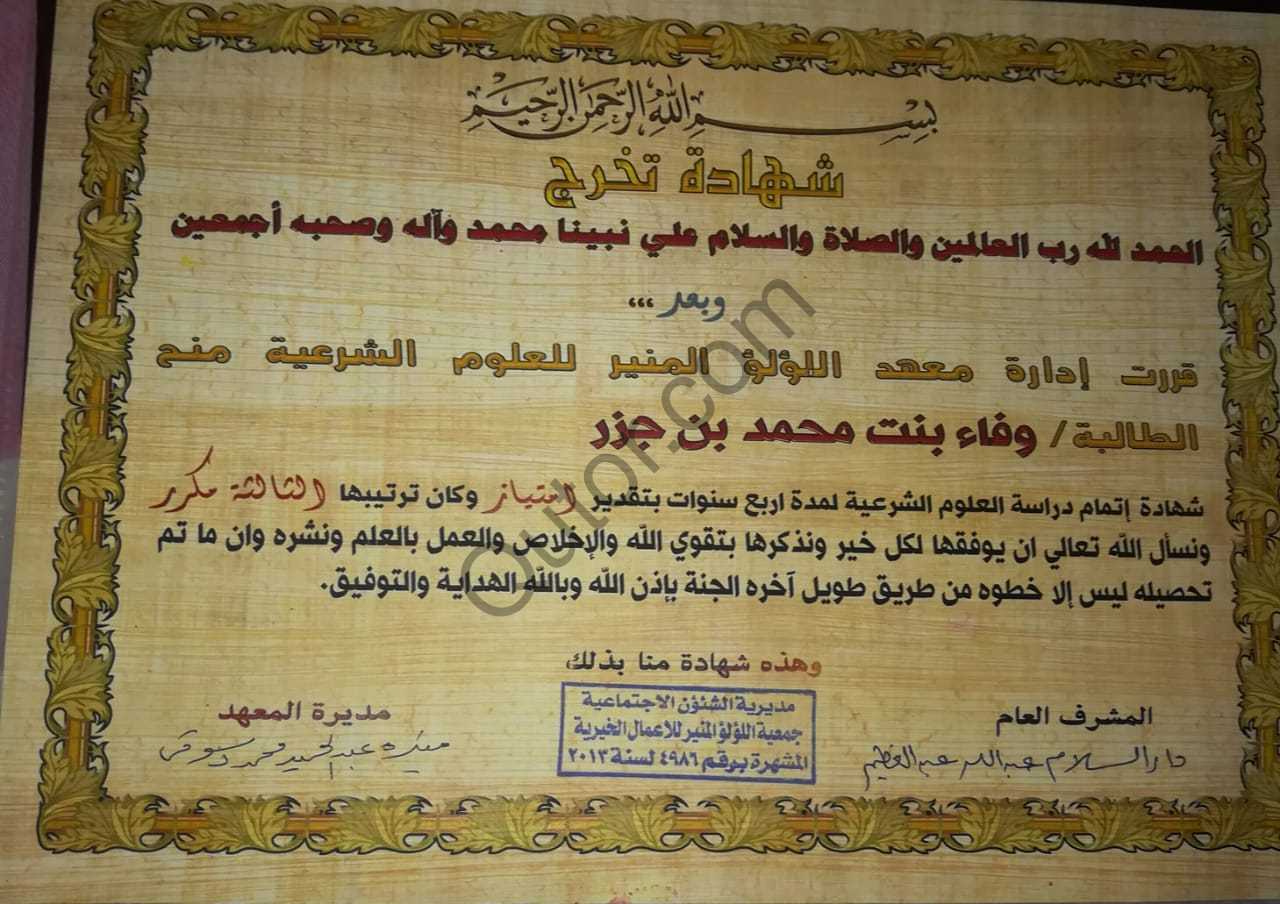 بسم الله الرحمن الرحيم
شهادة تخرج
الحمد لله رب العالمين والصلاة والسلام علي نبينا محمد وآله وصحبه أجمعين
وبعد ،،،
قررت إدارة معهد اللؤلؤ المنير للعلوم الشرعية منح
الطالبة / وفاء بنت محمد بن جزر
شهادة إتمام دراسة العلوم الشرعية لمدة اربع سنوات بتقدير امتياز وكان ترتيبها الثالثة مكرر
ونسأل الله تعالي ان يوفقها لكل خير ونذكرها بتقوي الله والإخلاص والعمل بالعلم ونشره وان ما تم
تحصيله ليس إلا خطوه من طريق طويل آخره الجنة بإذن الله وبالله الهداية والتوفيق.
وهذه شهادة منا بذلك
المشرف العام
دار السلام عبد الله عبد العظيم
مديرية الشئون الاجتماعية
جمعية اللؤلؤ المنير للأعمال الخيرية
المشهرة برقم ٤٩٨٦ لسنة ٢٠١٣
مديرة المعهد
عبد الحميد محمد
Outof.com